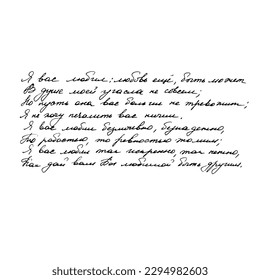 Я вас любил: любовь ещё, быть может
В душе моей угасла не совсем;
Но пусть она вас больше не тревожит;
Я не хочу печалить вас ничем.
Я вас любил безмолвно, безнадежно,
То робостью, то ревностью томим;
Я вас любил так искренно, так нежно,
Как дай вам Бог любимой быть другим.
shutterstock.com · 2294982603